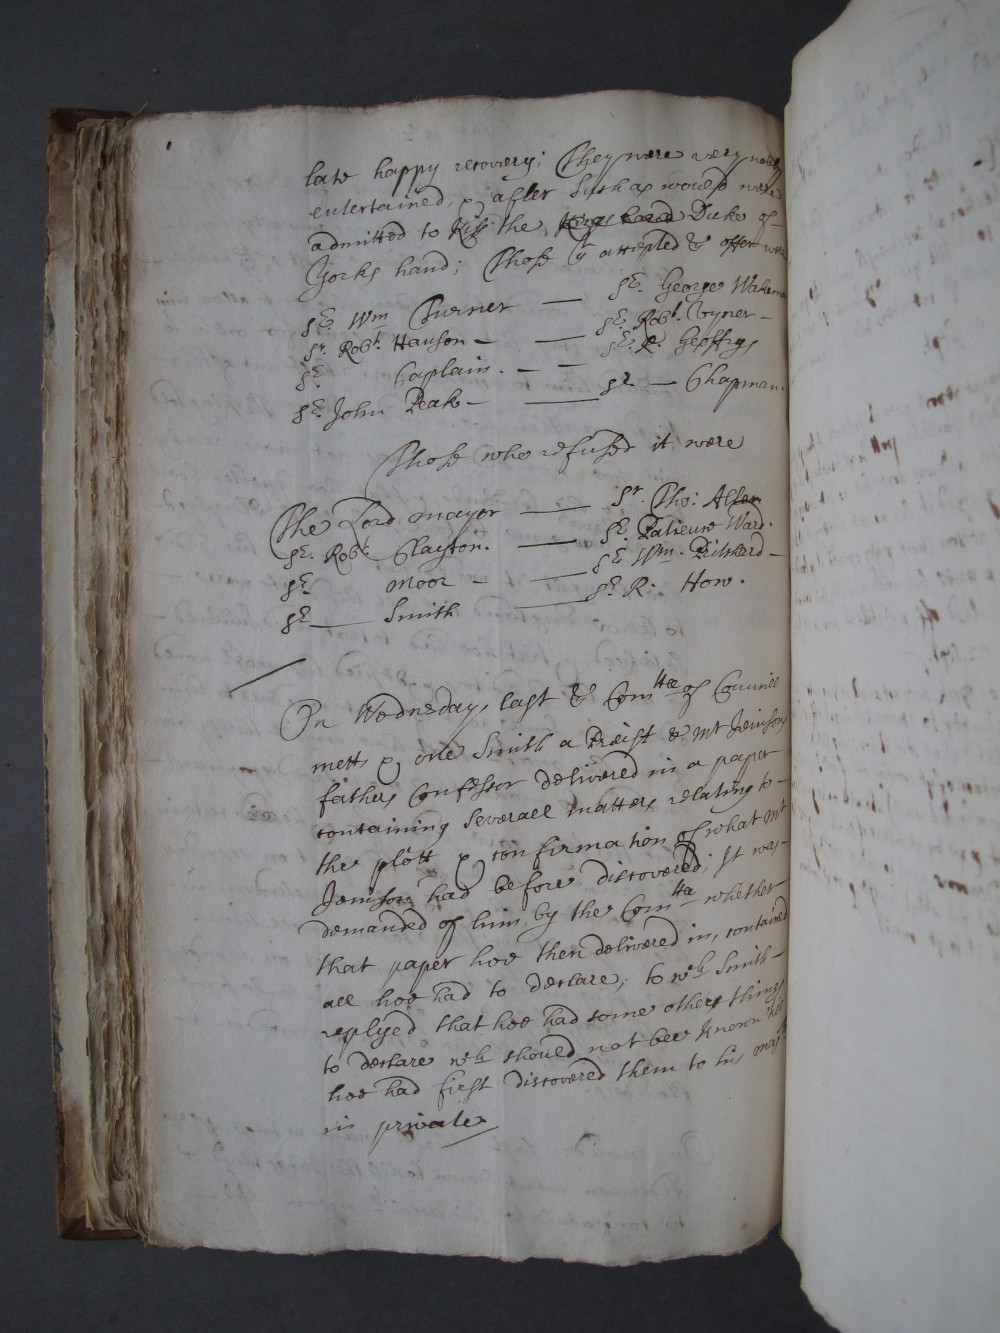 late happy recovery; They were very nobly
entertained, & after such as would were
admitted to kiss the Kings hand Duke of
Yorks hand; Those yt accepted ye offer were
Sr. Wm Turner — Sr. George Waterman
Sr. Robt. Hanson — — Sr. Robt. Vyner —
Sr. Caplain. — — Sr. R. Geffrys
Sr. John Peak — — Sr — Chapman.
Those who refused it were
The Lord mayor — Sr. Tho: Allen
Sr. Robt. Clayton. — Sr. Patience Ward.
Sr. Moor — — Sr Wm. Pritchard —
Sr — Smith — Sr. R: How.
On Wednesday last ye Comttee of Councill
mett & one Smith a Preist & Mr Jenisons
fathers Confessor delivered in a paper
containing severall matters relating to —
the plott & confirmation of what Mr
Jenison had before discovered; It was —
demanded of him by the Comttee whether
that paper hee then delivered in, contained
all hee had to declare; to wch Smith —
replyed that hee had some others things
to declare wch should not bee known till
hee had first discovered them to his maty
in private